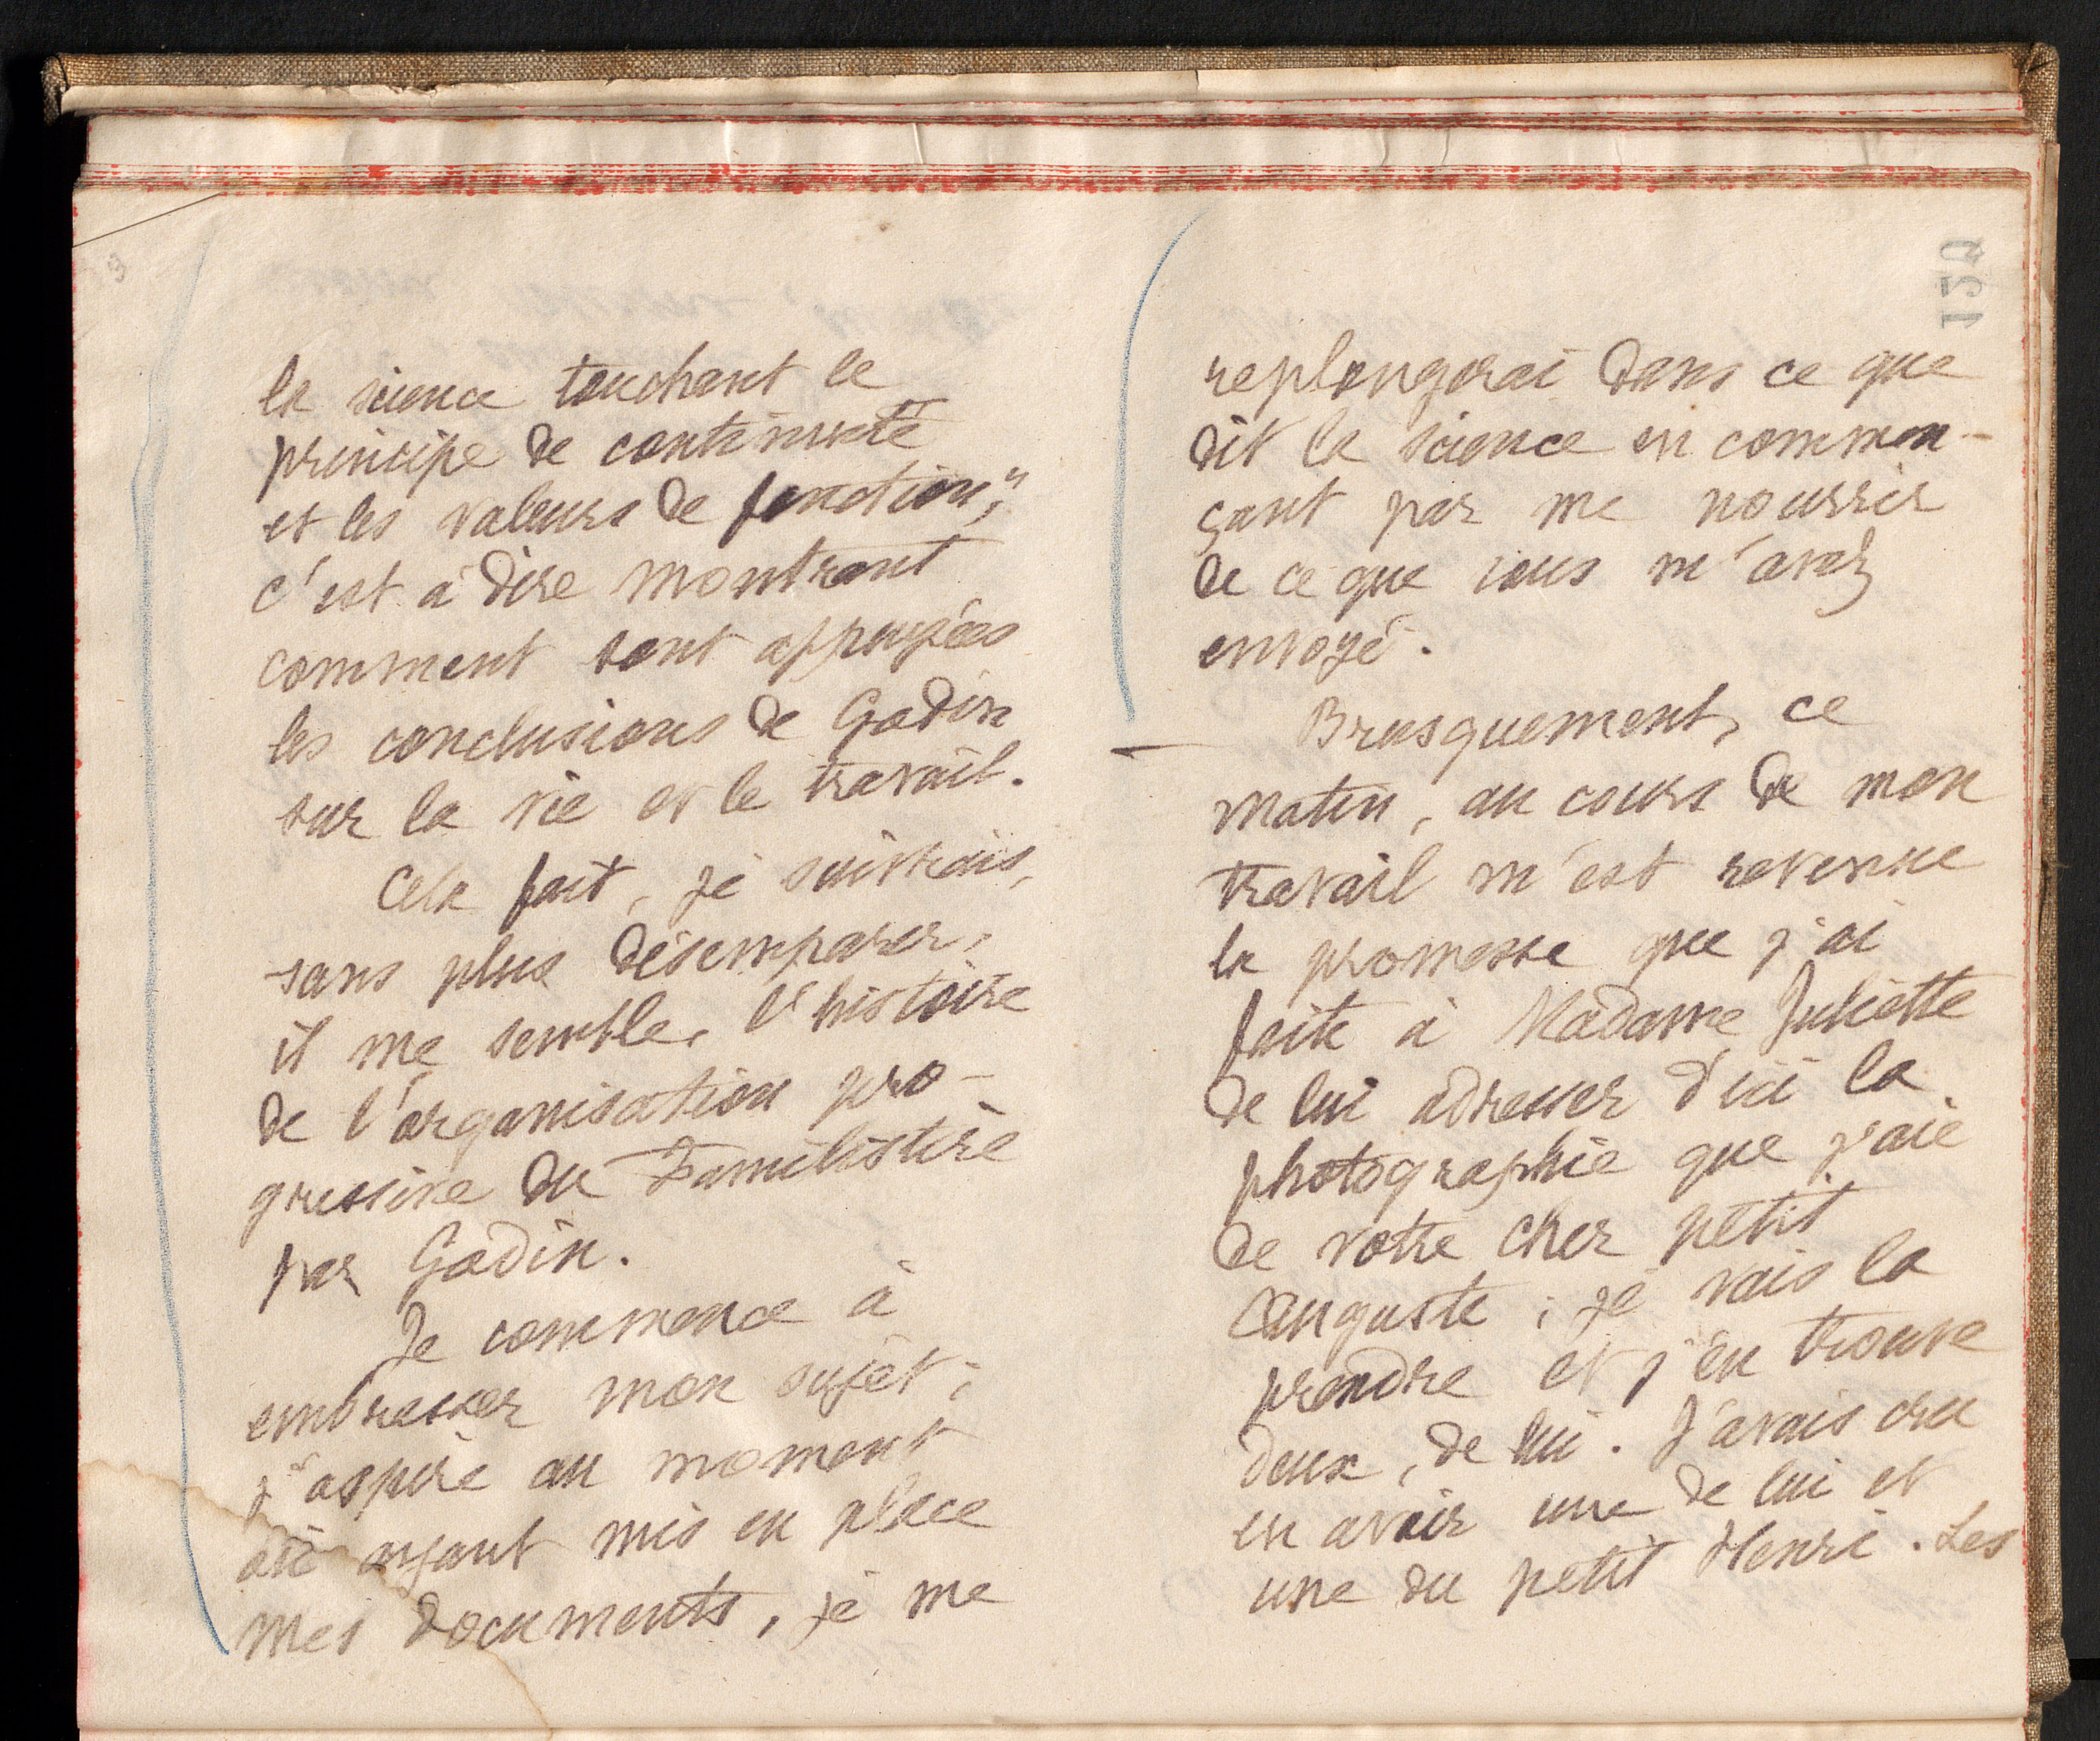 la science touchant le
principe de continuité
et les valeurs de fonction,"
c'est à dire montrant
comment sont appuyées
les conclusions de Godin
sur la vie et le travail.
Cela fait, je suivrais,
sans plus désemparer,
il me semble, l'histoire
de l'organisation pro-
gressive du Familistère
par Godin.
Je commence à
embrasser mon sujet ;
j'aspire au moment
où ayant mis en place
mes documents, je me
150
replongerai dans ce que
dit la science en commen-
çant par me nourrir
de ce que vous m'avez
envoyé.
Brusquement, ce
matin, au cours de mon
travail m'est revenue
la promesse que j'ai
faite à Madame Juliette
de lui adresser d'ici la
photographie que j'aie
de votre cher petit
Auguste ; je vais la
prendre et j'en trouve
deux, de lui. J'avais cru
en avoir une de lui et
une du petit Henri. Les